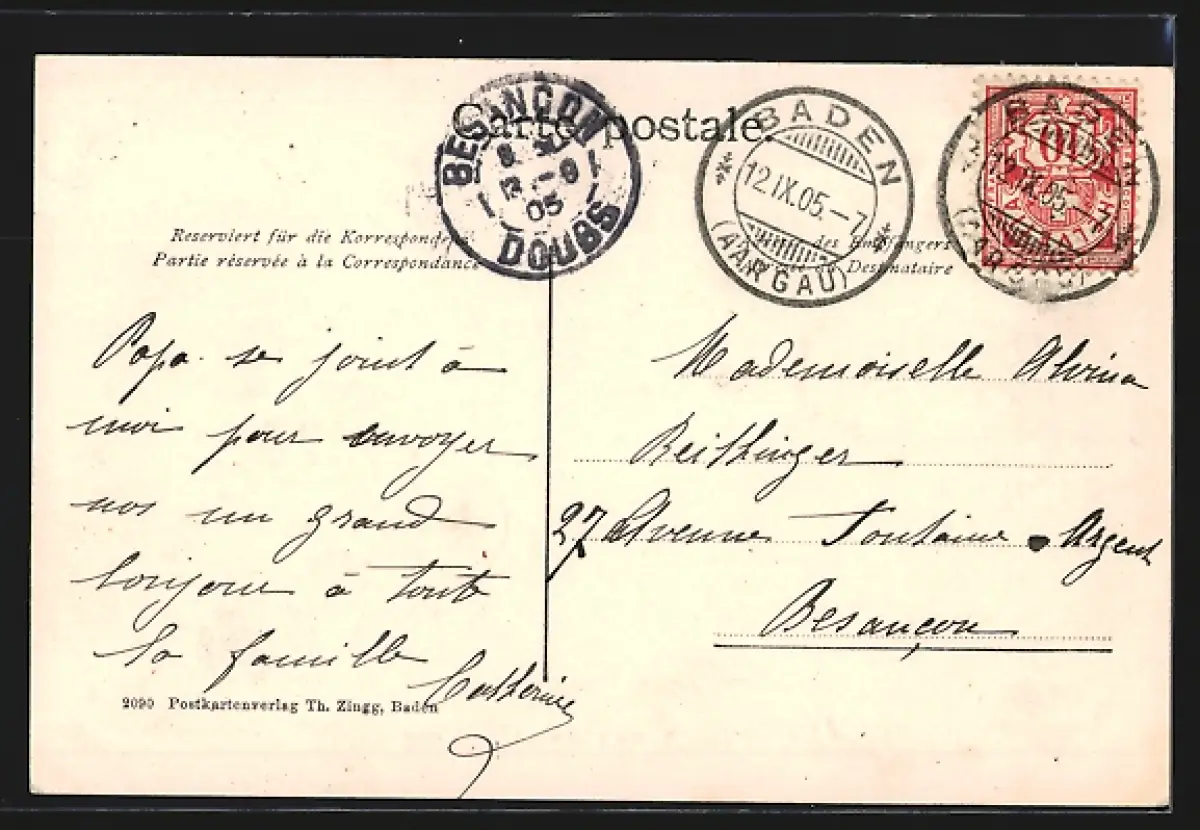 Carte postale
BESANÇON
05
DOUBS
BADEN
12.IX.05.-7
(AARGAU)
BADEN
12.IX.05.
10
Reserviert für die Korrespondenz
Partie réservée à la Correspondance
des Empfängers
du Destinataire
Papa se joint à
moi pour envoyer
nos un grand
bonjour à toute
la famille
Catherine
Mademoiselle Alvina
Beithinger
27 Avenue Fontaine Argent
Besançon
2090 Postkartenverlag Th. Zingg, Baden